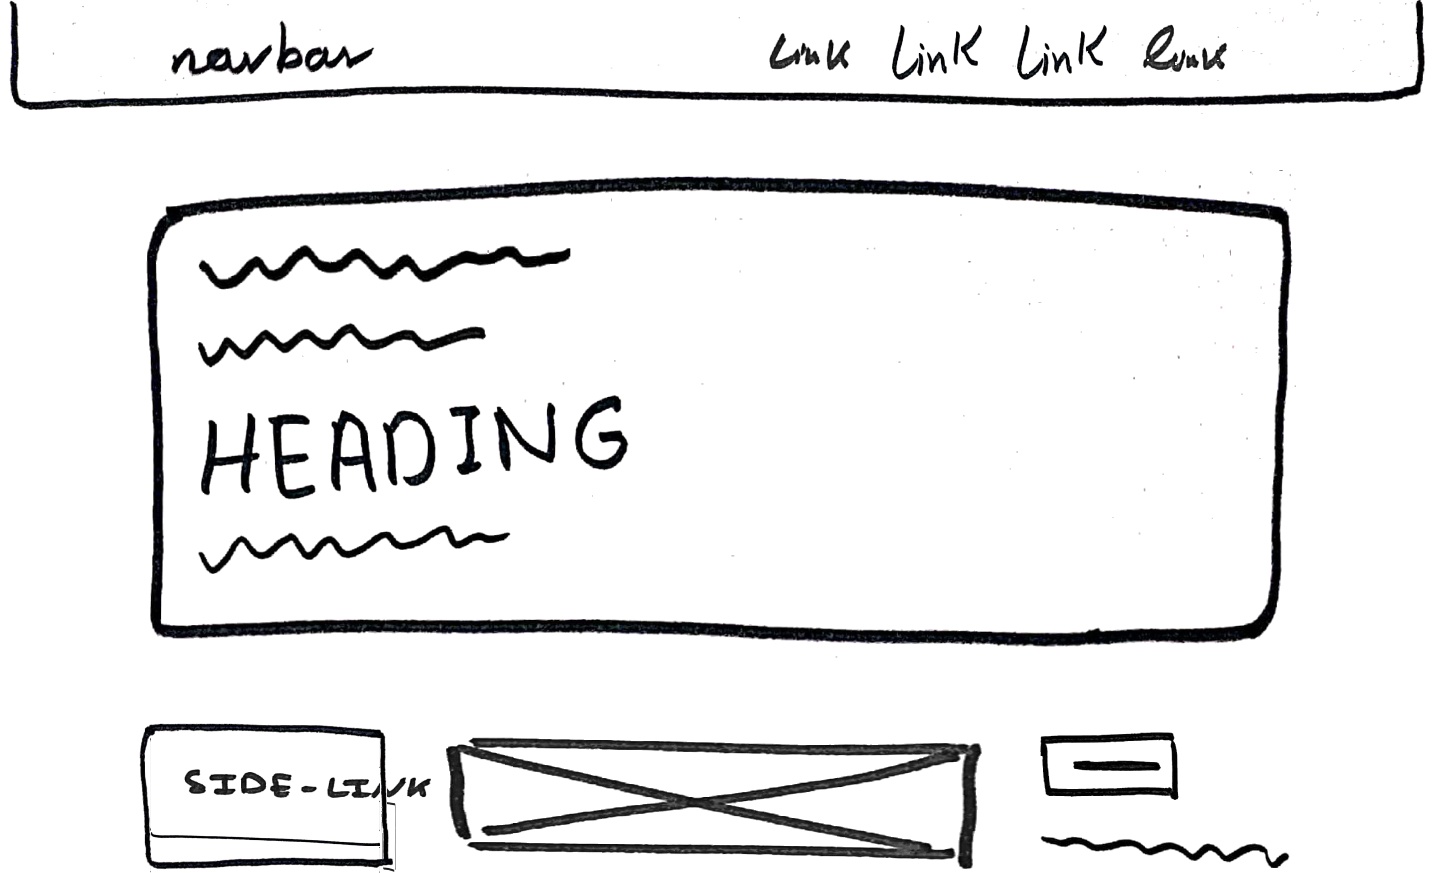 navbar Link Link Link Link
HEADING
SIDE-LINK